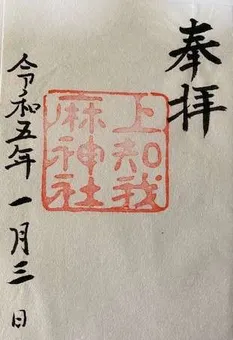 奉拝
上知我
麻神社
令和五年一月三日